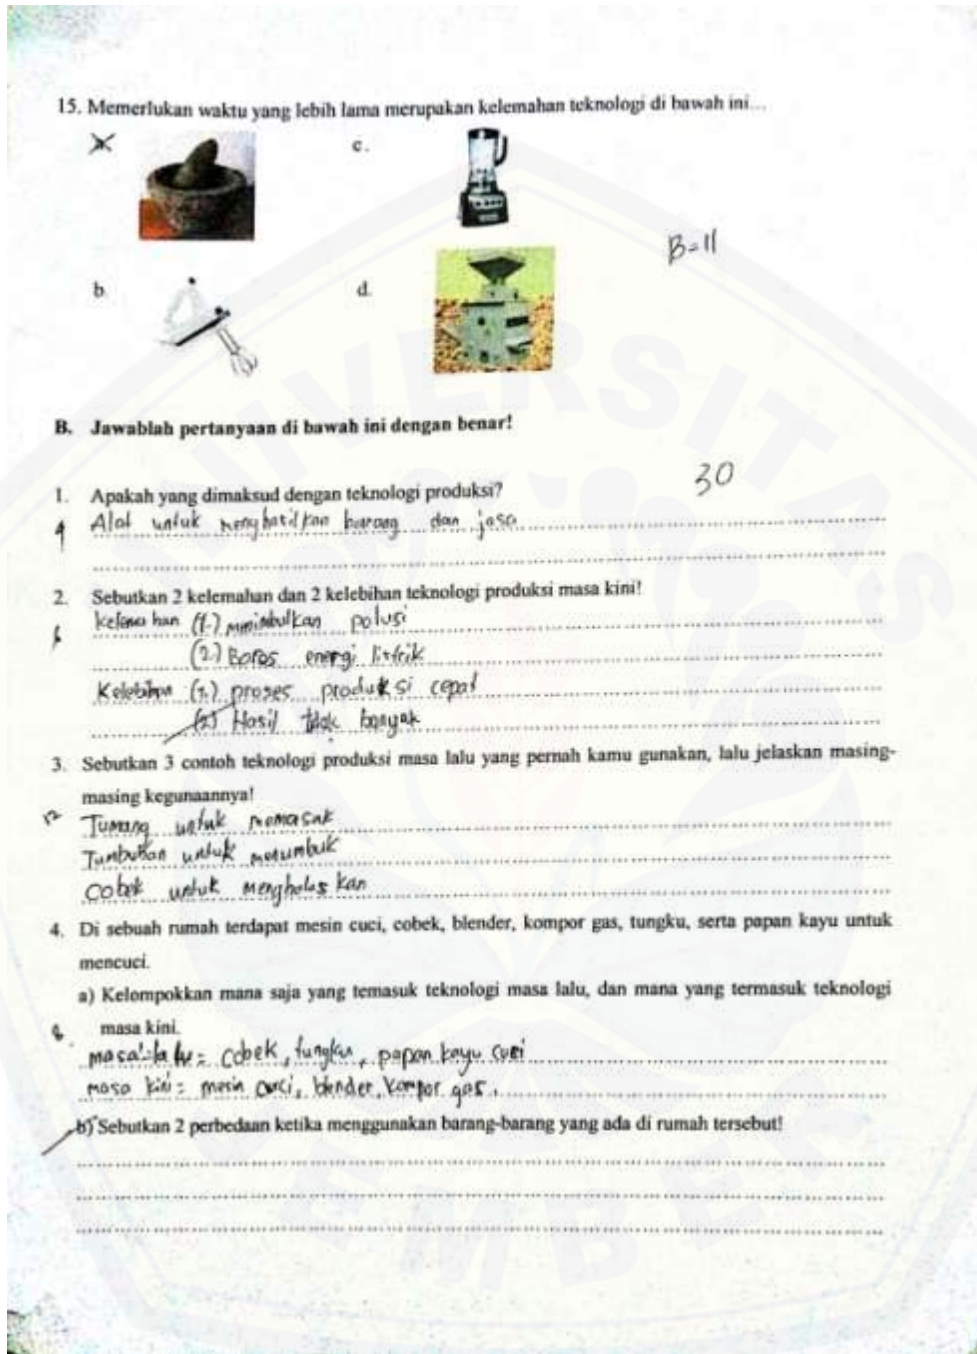 15. Memerlukan waktu yang lebih lama merupakan kelemahan teknologi di bawah ini...
a. c.
B=11
b. d.
B. Jawablah pertanyaan di bawah ini dengan benar!
30
1. Apakah yang dimaksud dengan teknologi produksi?
4 Alat untuk menghasilkan barang dan jasa
2. Sebutkan 2 kelemahan dan 2 kelebihan teknologi produksi masa kini!
6 kelemahan (1.) menimbulkan polusi
(2.) Boros energi listrik
Kelebihan (1.) proses produksi cepat
(2) Hasil tidak banyak
3. Sebutkan 3 contoh teknologi produksi masa lalu yang pernah kamu gunakan, lalu jelaskan masing-
masing kegunaannya!
12 Tumang untuk memasak
Tumbukan untuk menumbuk
cobek untuk menghaluskan
4. Di sebuah rumah terdapat mesin cuci, cobek, blender, kompor gas, tungku, serta papan kayu untuk
mencuci.
a) Kelompokkan mana saja yang temasuk teknologi masa lalu, dan mana yang termasuk teknologi
8 masa kini.
masa lalu = cobek, tungku, papan kayu cuci
masa kini = mesin cuci, blender, kompor gas.
b) Sebutkan 2 perbedaan ketika menggunakan barang-barang yang ada di rumah tersebut!
UNIVERSITAS
JEMBER